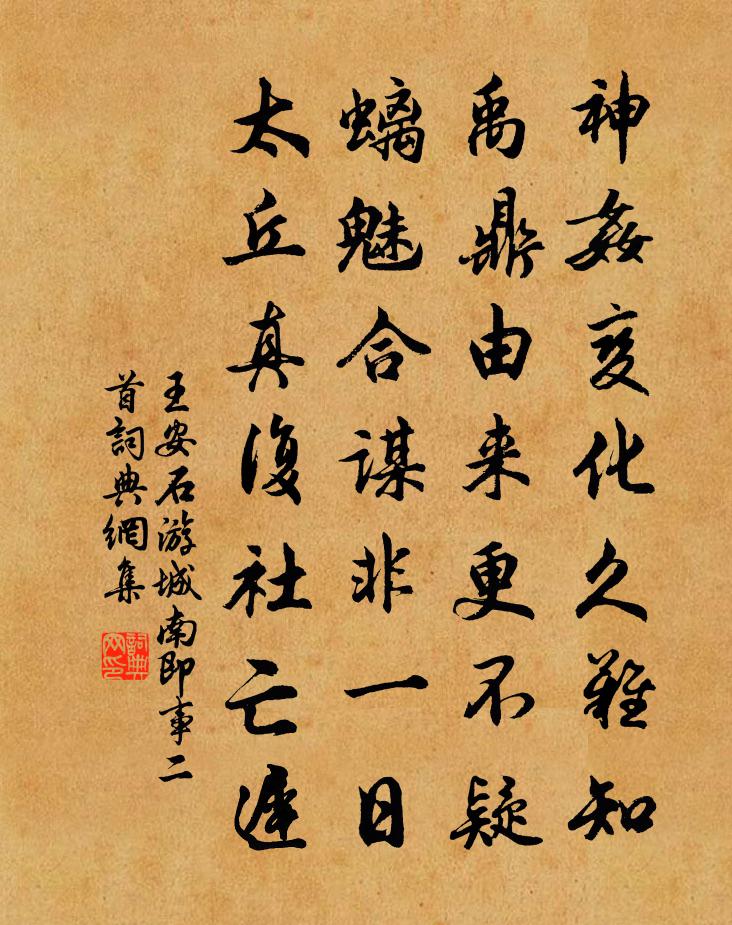 神姦變化久難知
禹鼎由来更不疑
螭魅合謀非一日
太丘真復社亡遲
王安石游城南即事二
首詞典網集
詞典網印